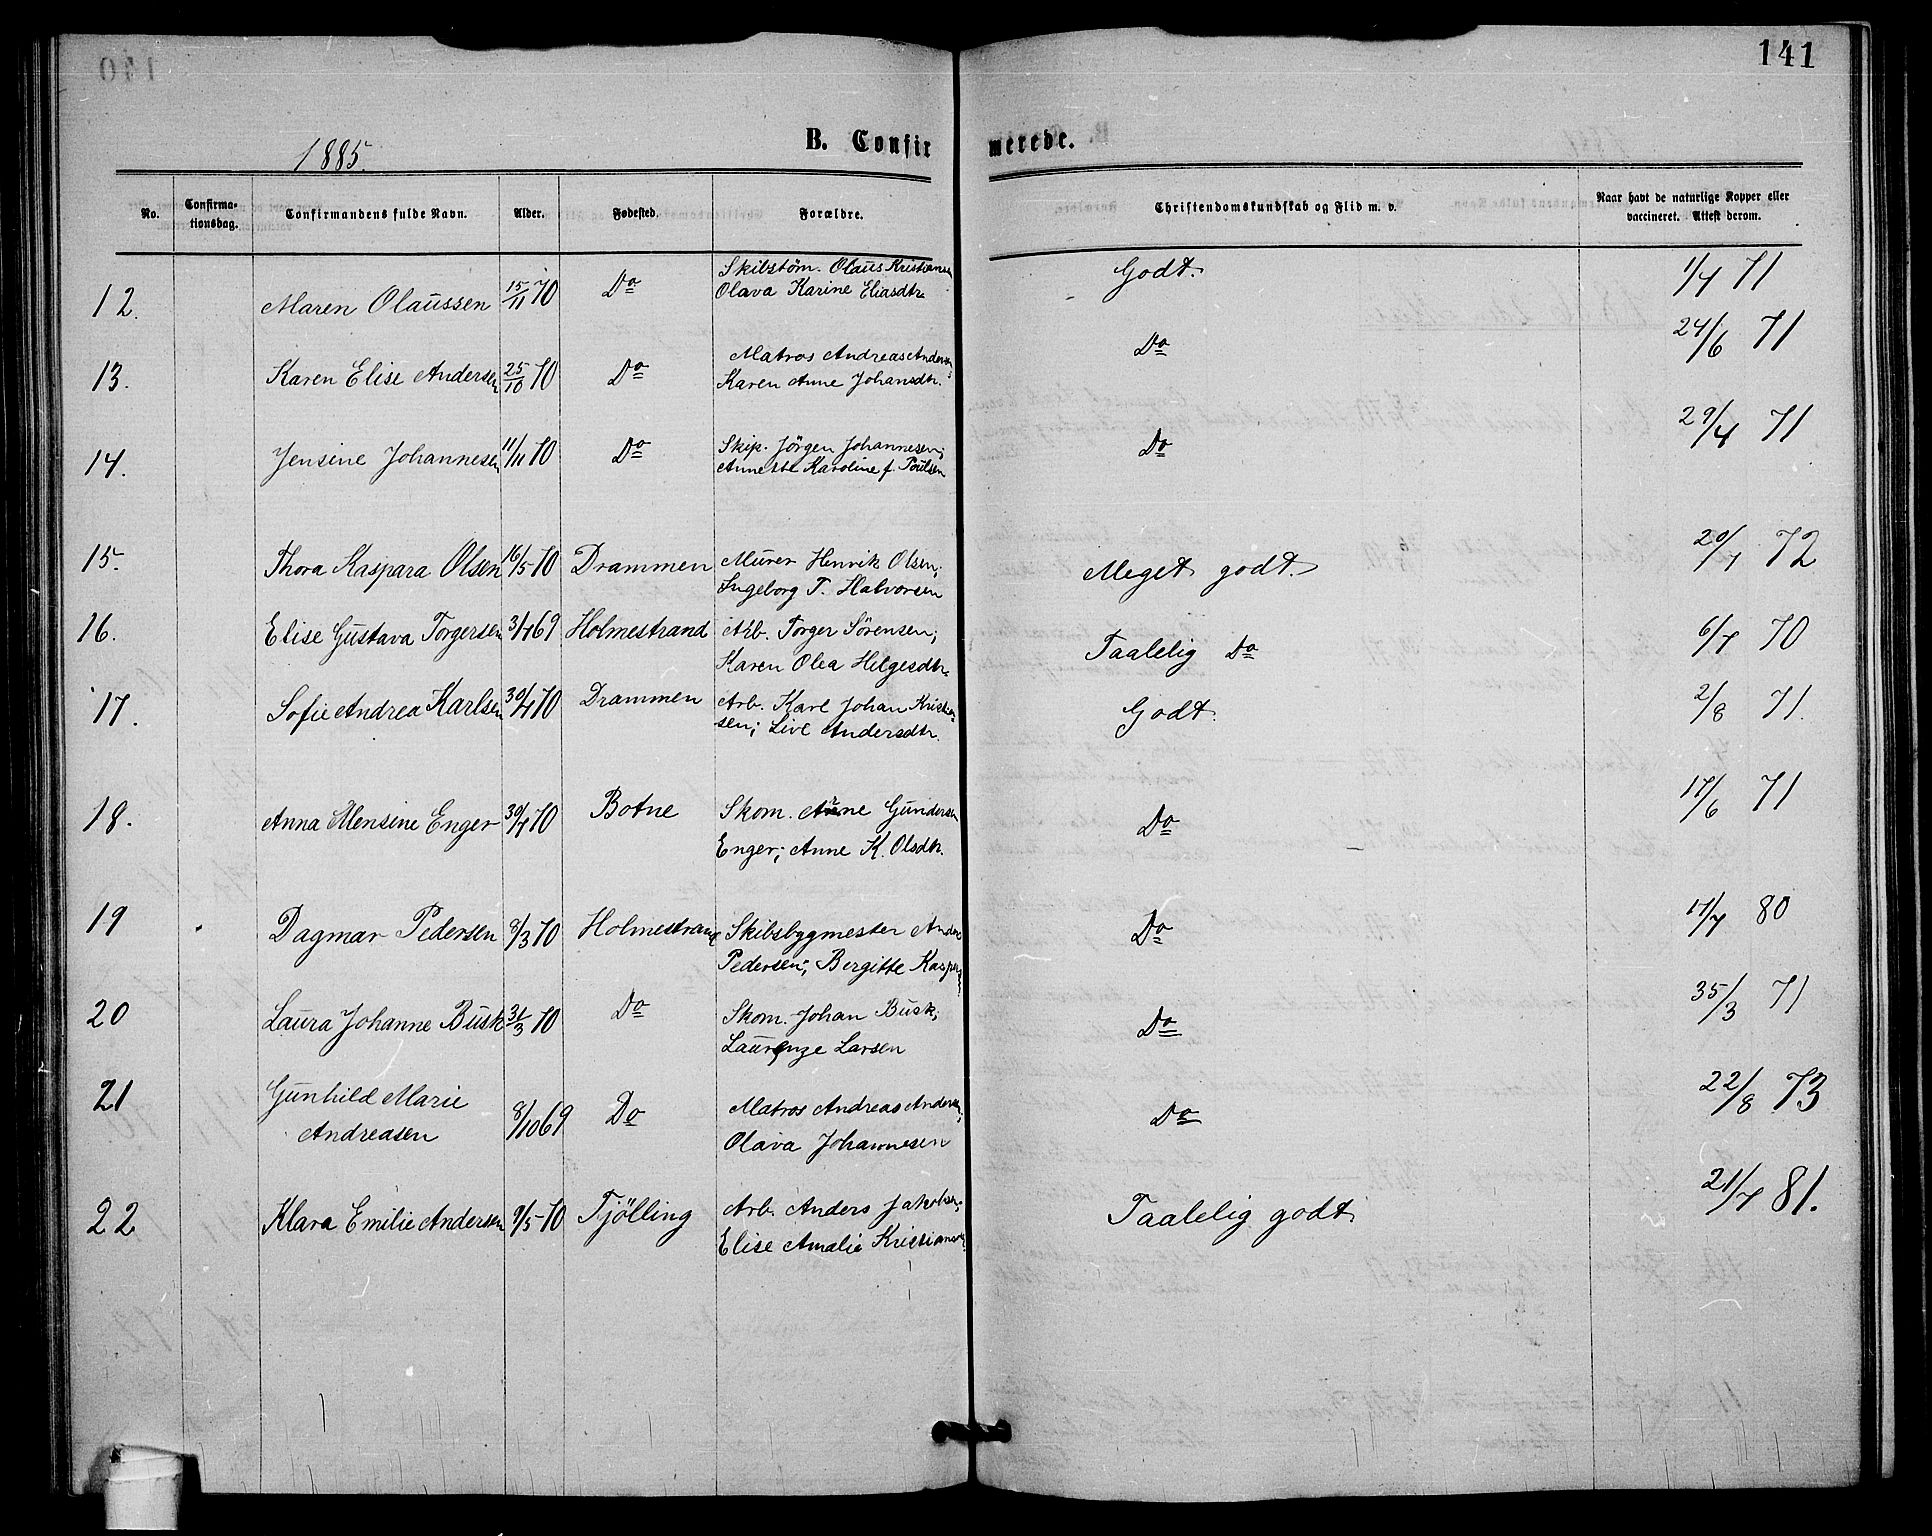 141
1885.
B. Confirmerede.
No. Confirmationsdag. Confirmandens fulde Navn. Alder. Fødested. Forældre. Christendomskundskab og Flid m. v. Naar havt de naturlige Kopper eller vaccineret. Attest derom.
Skibstøm. Olaus Kristiansen
12. Maren Olaussen 15/11 70 Do Olava Karine Eliasdtr. Godt. 1/7 71
Matros Andreas Andersen;
13. Karen Elise Andersen 25/10 70 Do Karen Anne Johansdtr. Do 24/6 71
Skip. Jörgen Johannesen;
14. Jensine Johannesen 11/11 70 Do Annette Karoline f. Poulsen Do 29/4 71
15. Thora Kaspara Olsen 16/5 70 Drammen Murer Henrik Olsen; Meget godt. 20/7 72
Ingeborg T. Halvorsen
16. Elise Gustava Torgersen 3/7 69 Holmestrand Arb. Torger Sörensen; Taalelig Do 6/7 70
Karen Olea Helgesdtr.
17. Sofie Andrea Karlsen 30/7 70 Drammen Arb. Karl Johan Kristian- Godt. 2/8 71.
sen; Live Andersdtr.
18. Anna Mensine Enger 30/7 70 Botne Skom. Arne Gundersen Do 17/6 71
Enger; Anne K. Olsdtr.
19 Dagmar Pedersen 8/3 70 Holmestrand Skibsbygmester Anders Do 17/7 80
Pedersen; Bergitte Kaspersen
20 Laura Johanne Busk 31/3 70 Do Skom. Johan Busk; Do 35/3 71
Laurenze Larsen
21 Gunhild Marie
Andreasen 8/10 69 Do Matros Andreas Andersen; Do 22/8 73
Olava Johannesen
22 Klara Emilie Andersen 9/5 70 Tjölling Arb. Anders Jakobsen; Taalelig godt 21/7 81.
Elise Amalie Kristiansen